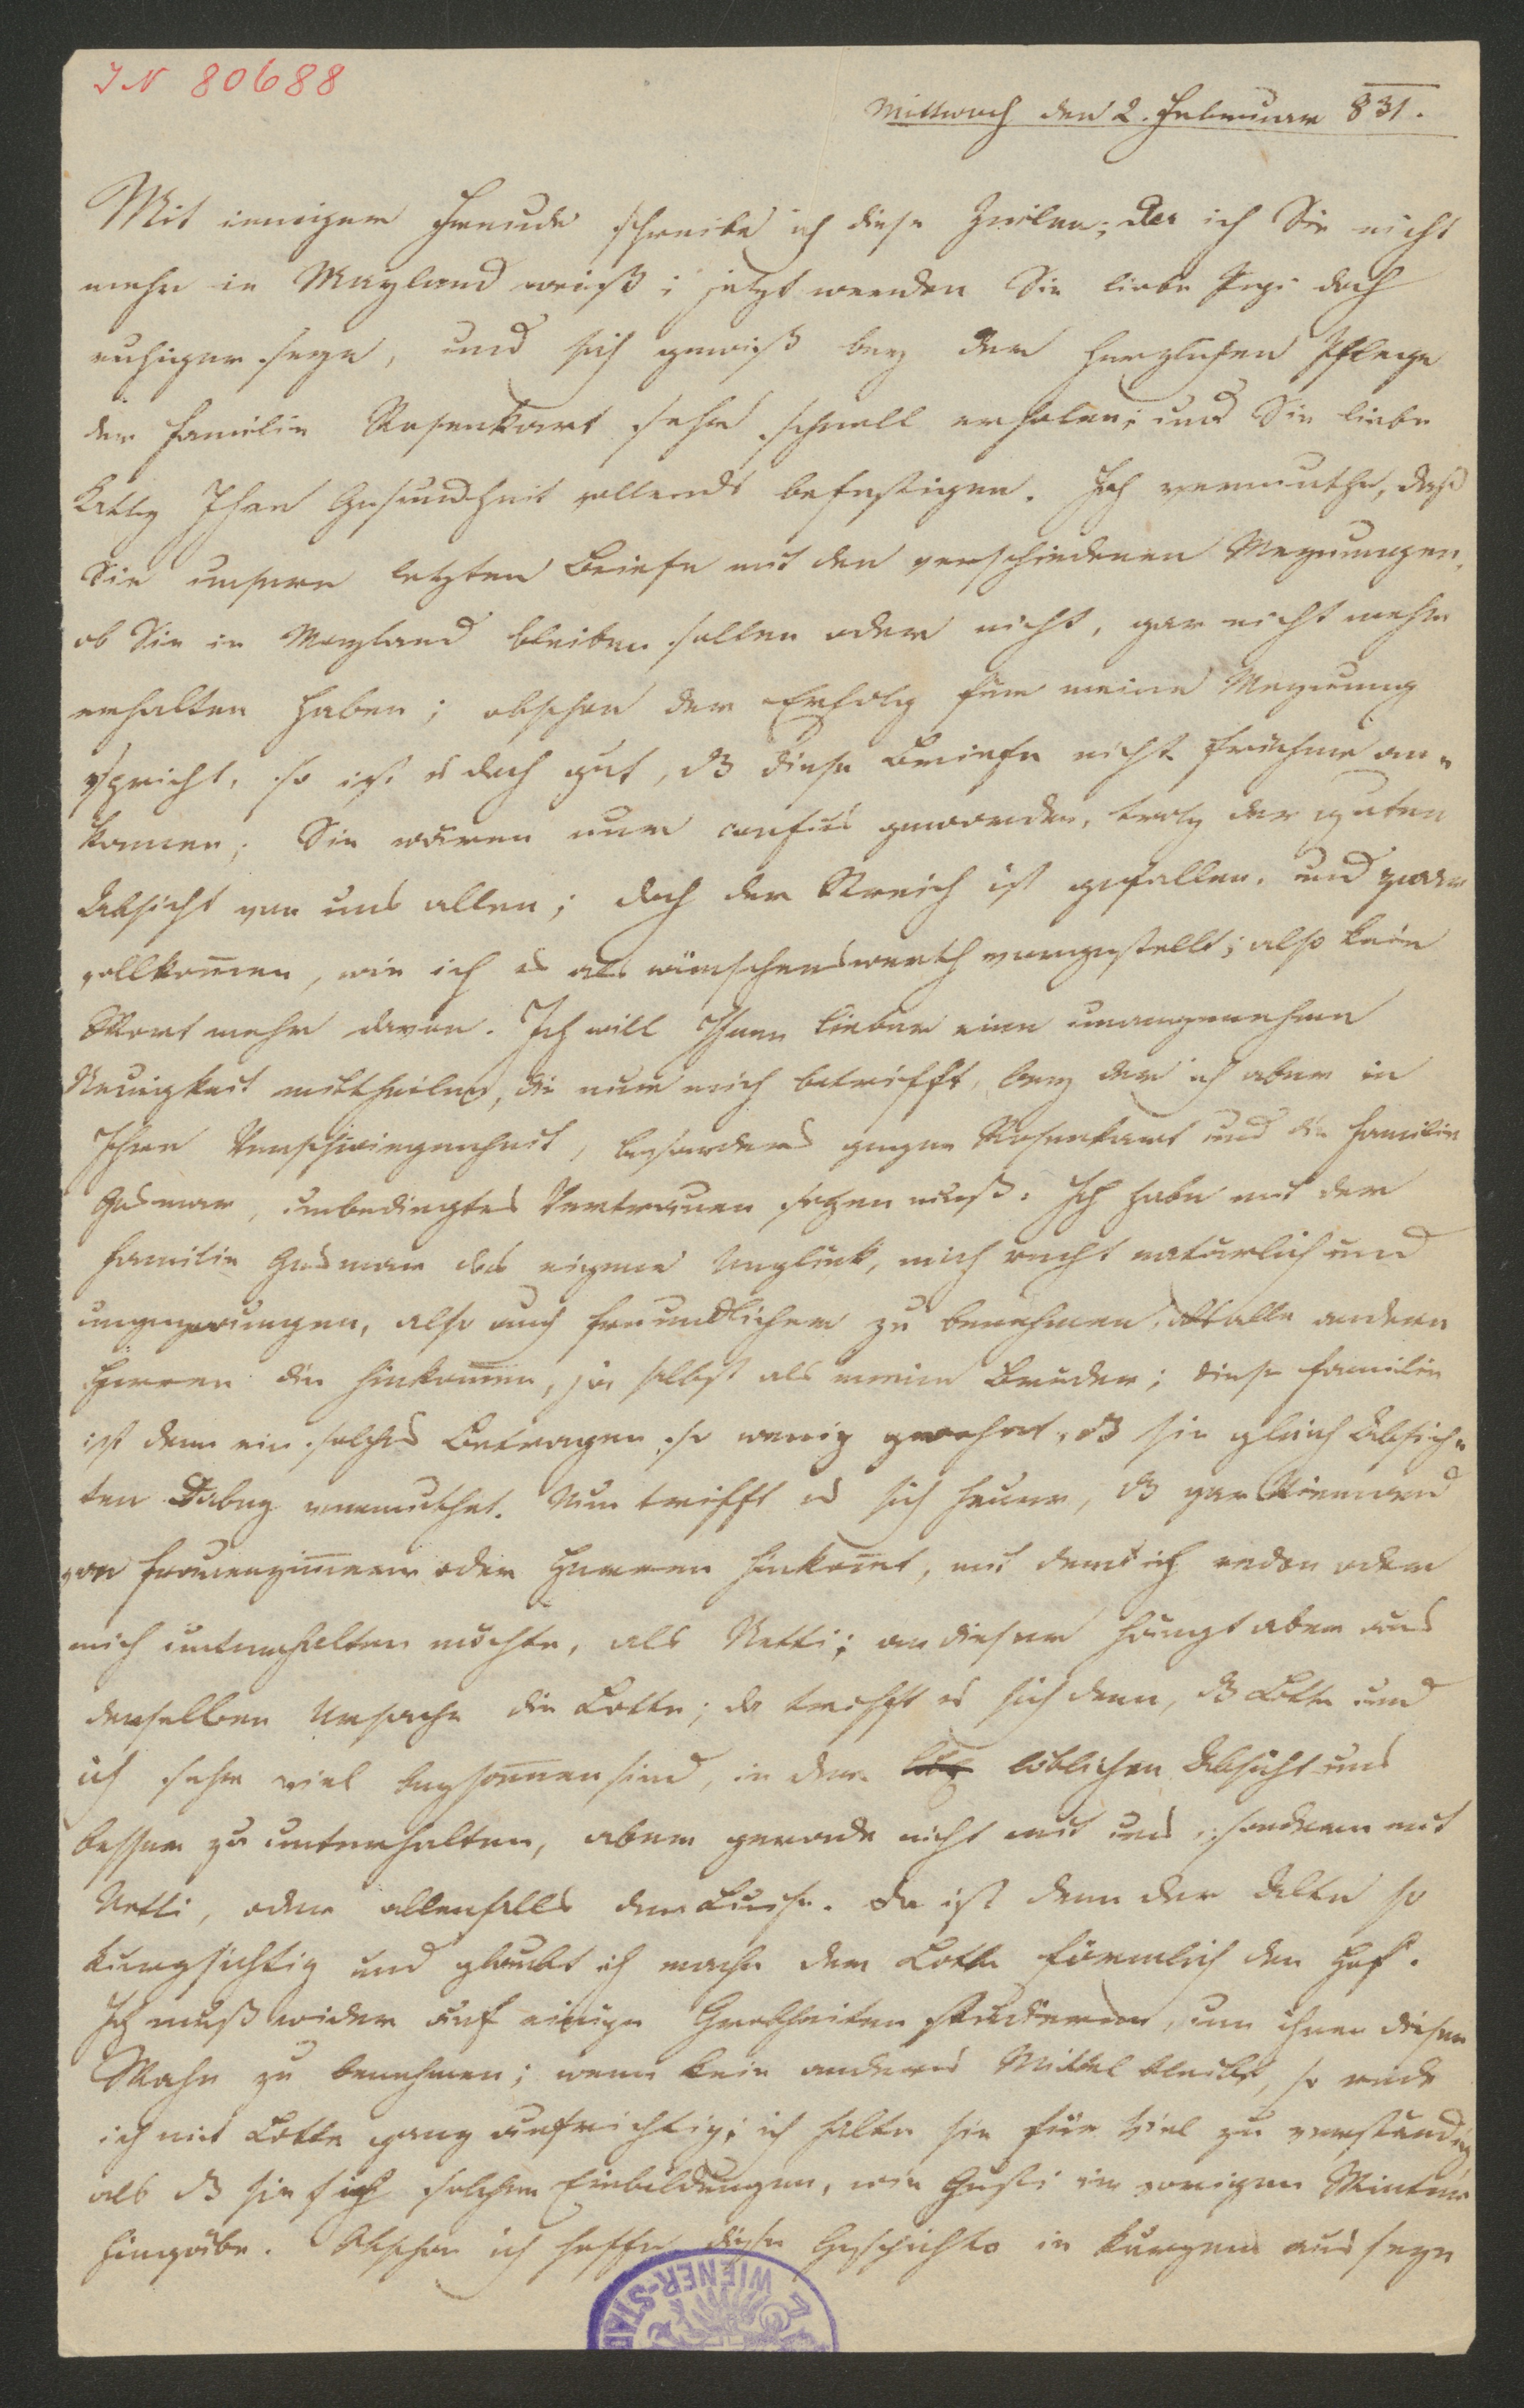 IN 80688
Mittwoch den 2. Februar 831.
Mit inniger Freude schreibe ich diese Zeilen; da ich Sie nicht
mehr in Mayland weiß; jetzt werden Sie liebe Pepi doch
ruhiger seyn, und sich gewiß bey der herzlichen Pflege
der Familie Rosenkart sehr schnell erholen; und Sie liebe
Katty Ihre Gesundheit vollends befestigen. Ich vermuthe, daß
Sie unsere letzten Briefe mit den verschiedenen Meynungen,
ob Sie in Mayland bleiben sollen oder nicht, gar nicht mehr
erhalten haben; obschon der Erfolg für meine Meynung
spricht, so ist es doch gut, dß diese Briefe nicht früher an-
kamen; Sie wären nur confus geworden, trotz der guten
Absicht von uns allen; doch der Streich ist gefallen, und zwar
vollkom̅en, wie ich es als wünschenswerth vorgestellt; also kein
Wort mehr davon. Ich will Ihnen lieber eine unangenehme
Neuigkeit mittheilen, die nur mich betrifft, bey der ich aber in
Ihre Verschwiegenheit, besonders gegen Rosenkart und die Familie
Gusmar, unbedingtes Vertrauen setzen muß. Ich habe mit der
Familie Gusmar das eigene Unglück, mich recht natürlich und
ungezwungen, also auch freundlicher zu benehmen, als alle andern
Herren die hinkom̅en, ja selbst als meine Brüder; diese Familie
ist denn ein solches Betragen so wenig gewohnt, dß sie gleich Absich-
ten dabey vermuthet. Nun trifft es sich heuer, dß gar Niemand
von Frauenzim̅ern oder Herren hinkom̅t, mit dem ich reden oder
mich unterhalten möchte, als Netti; an dieser hängt aber aus
derselben Ursache die Lotte; da trifft es sich denn, dß Lotte und
ich sehr viel beysam̅en sind, in der löblichen Absicht uns
besser zu unterhalten, aber gerade nicht mit uns, sondern mit
Netti, oder allenfalls der Luise. Da ist denn der Alte so
kurzsichtig und glaubt ich mache der Lotte förmlich den Hof.
Ich muß wider auf einige Grobheiten studieren, um ihnen diesen
Wahn zu benehmen; wenn kein anderes Mittel bleibt, so rede
ich mit Lotte ganz aufrichtig; ich halte sie für viel zu verständig
als dß sie sich solchen Einbildungen, wie Gusti im vorigen Winter
hingäbe. Obschon ich hoffe, diese Geschichte in kurzem aus seyn
WIENER-STA